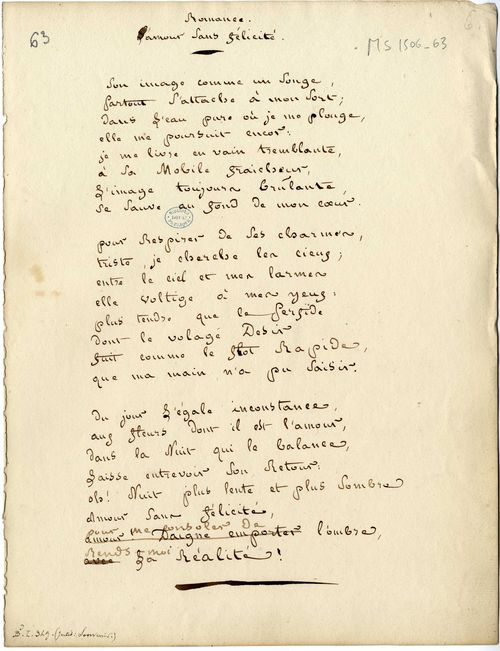 Romance.
l'amour sans félicité.
63
MS 1506-63
Son image comme un Songe,
partout s'attache à mon Sort;
Dans l'eau pure où je me plonge,
elle me poursuit encor:
je me livre en vain tremblante,
à Sa Mobile fraîcheur,
L'image toujours brûlante,
se sauve au fond de mon cœur.
pour Respirer de ses charmes,
triste, je cherche les cieux;
entre le ciel et mes larmes
elle voltige à mes yeux:
plus tendre que le perfide
Dont le volage Desir
fuit comme le flot Rapide,
que ma main n'a pu saisir.
Du jour l'égale inconstance,
aux fleurs dont il est l'amour,
dans la Nuit qui le balance,
Laisse entrevoir Son Retour:
oh! Nuit plus lente et plus Sombre
Amour Sans félicité,
pour me consoler de
amour Daigne emporter l'ombre,
Rends moi
avec La Réalité!